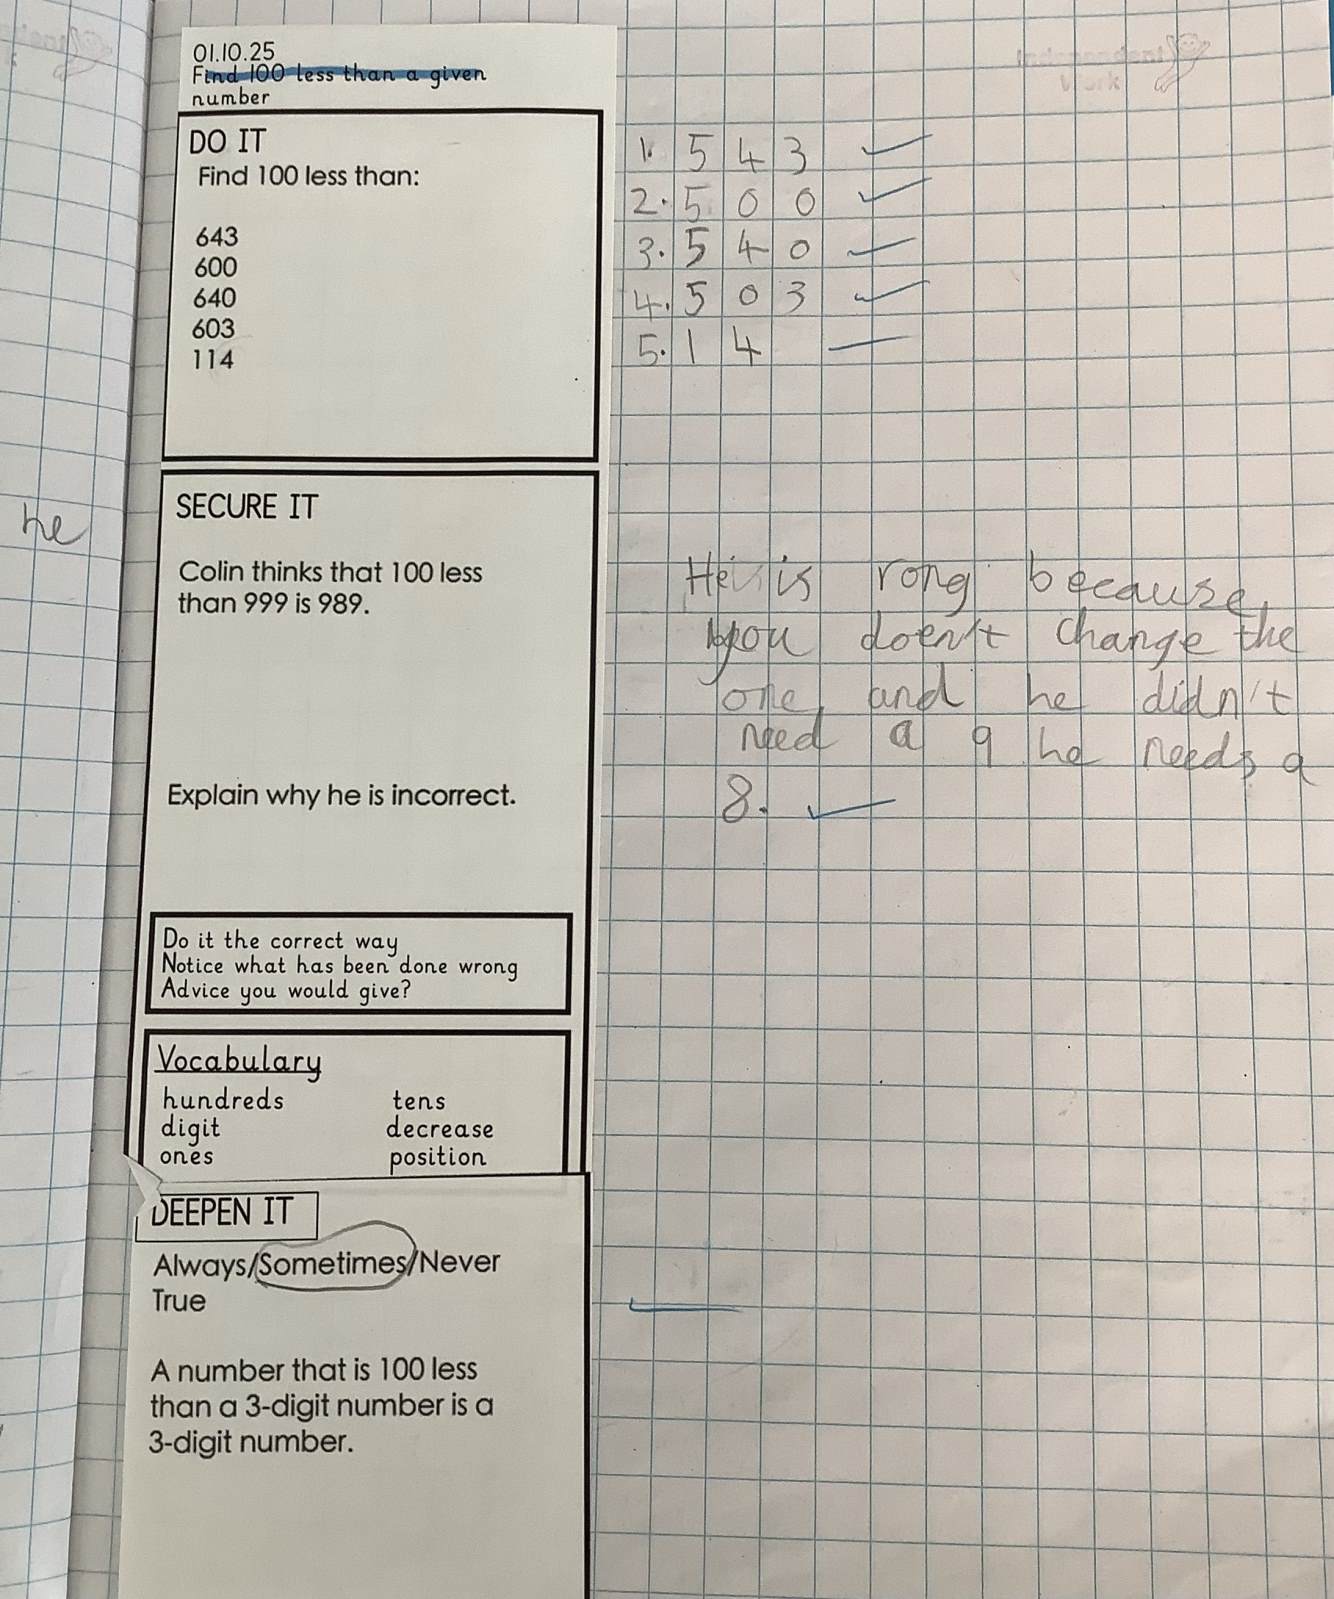 01.10.25
Find 100 less than a given
number
DO IT
Find 100 less than:
643
600
640
603
114
1. 5 4 3
2. 5 0 0
3. 5 4 0
4. 5 0 3
5. 1 4
SECURE IT
Colin thinks that 100 less
than 999 is 989.
Explain why he is incorrect.
he
He is rong because
you doen't change the
one and he didn't
need a 9 he needs a
8.
Do it the correct way
Notice what has been done wrong
Advice you would give?
Vocabulary
hundreds tens
digit decrease
ones position
DEEPEN IT
Always/Sometimes/Never
True
A number that is 100 less
than a 3-digit number is a
3-digit number.
Independent
Work